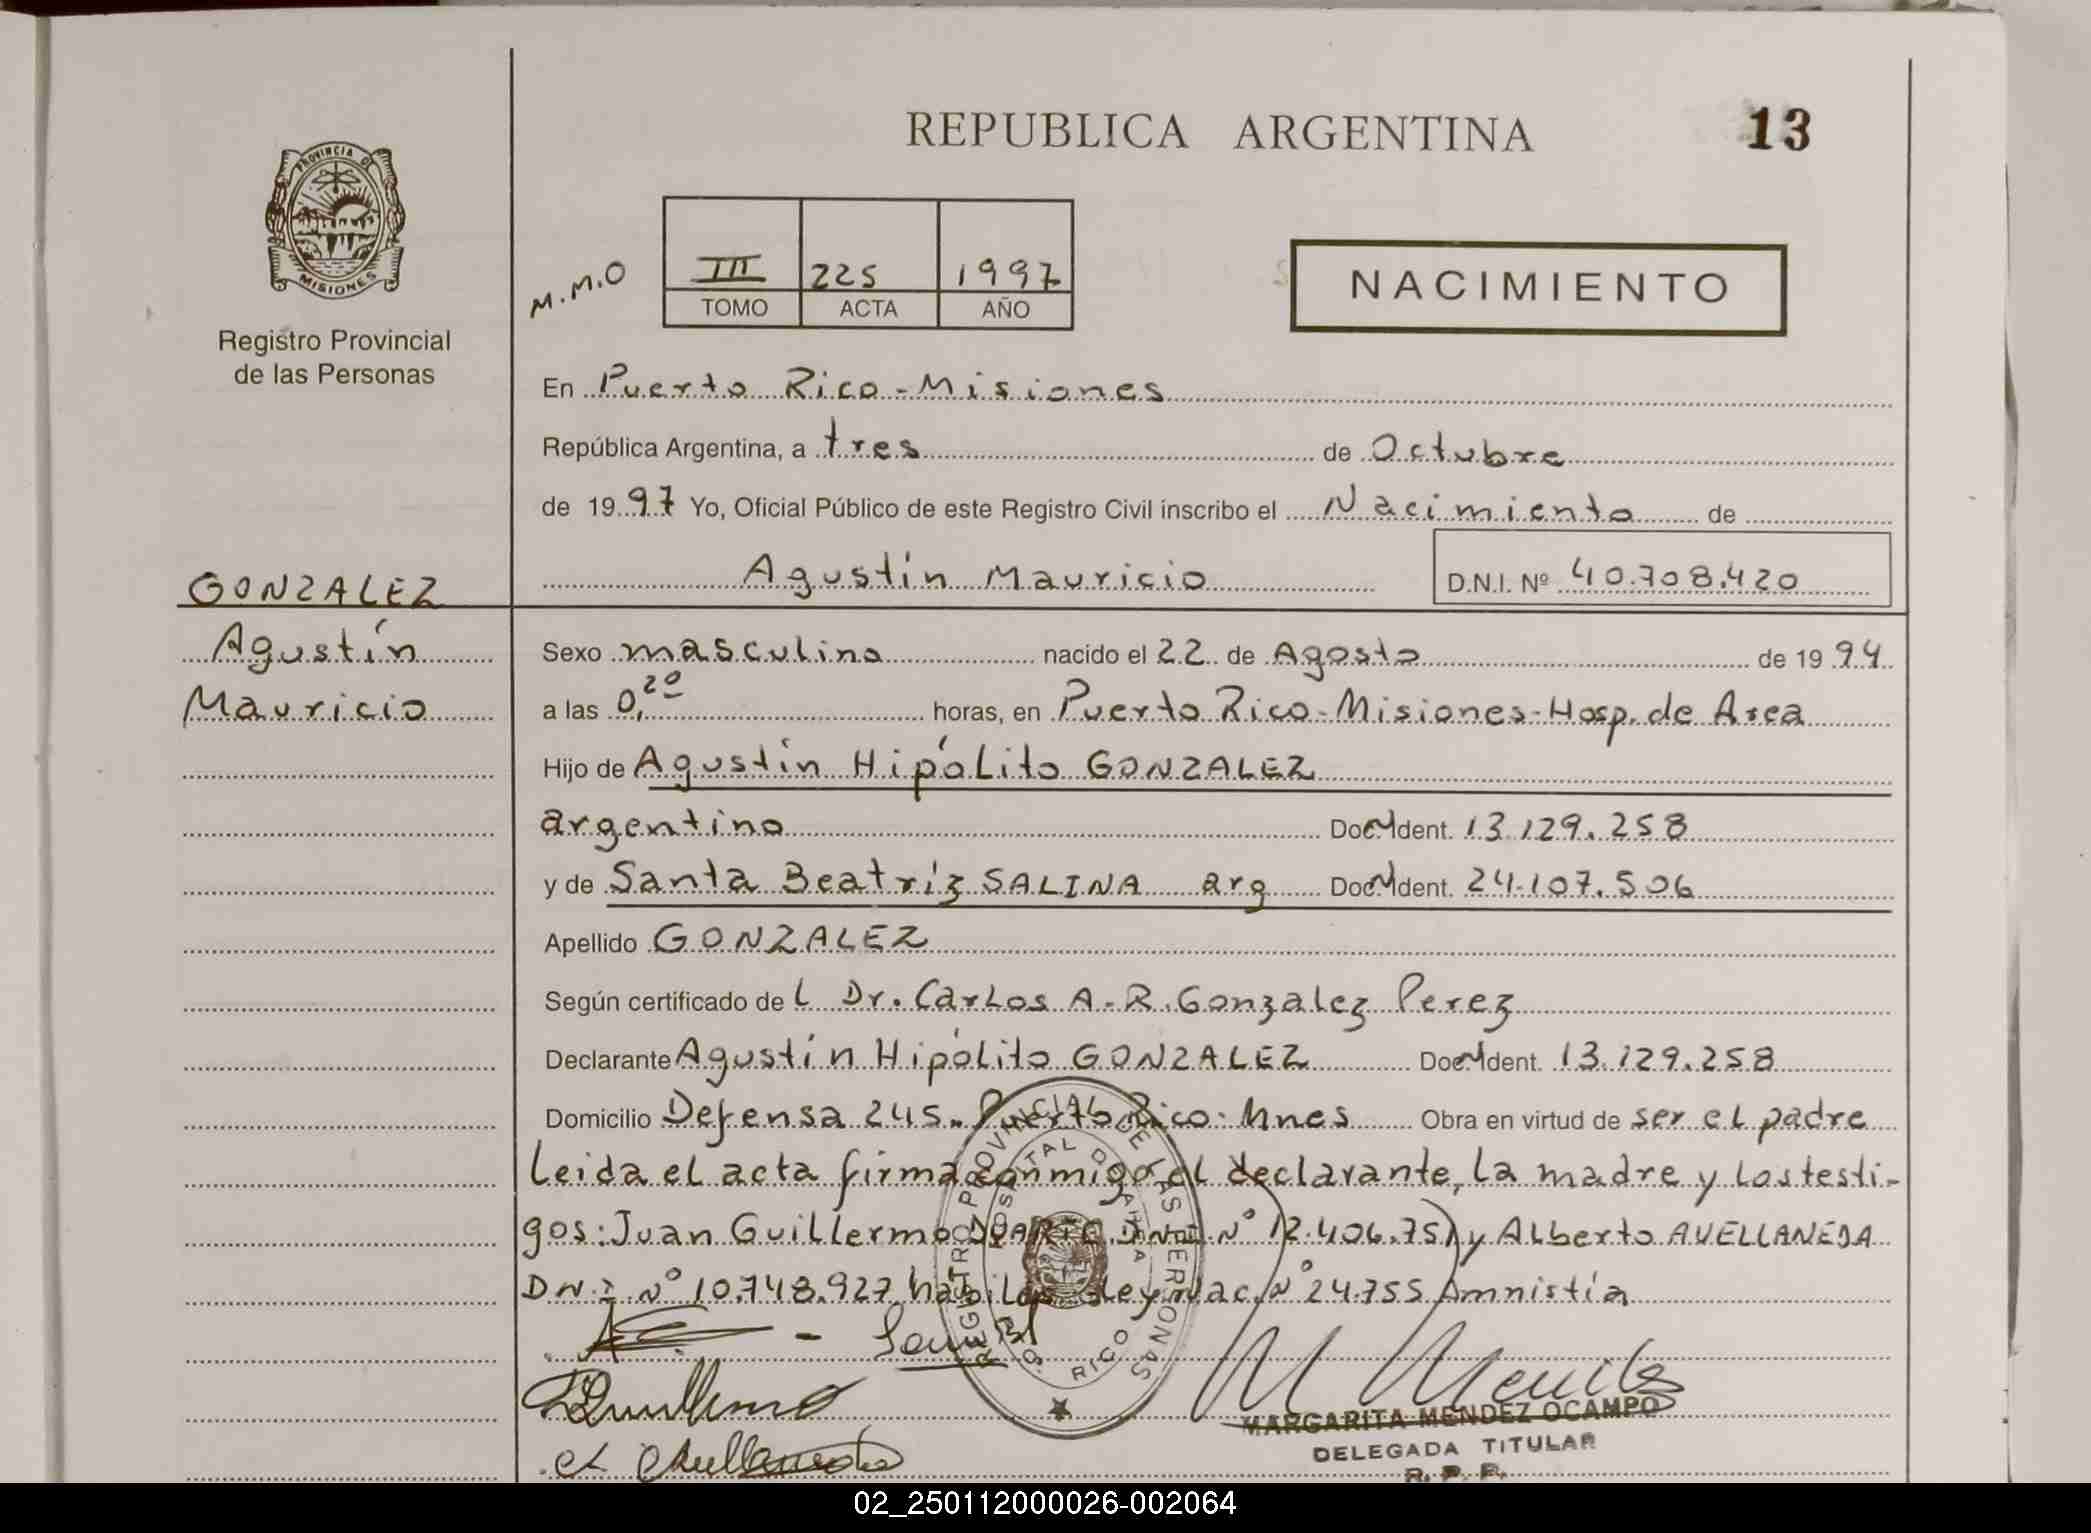 REPUBLICA ARGENTINA
13
PROVINCIA DE
MISIONES
Registro Provincial
de las Personas
M.M.O
III 225 1997
TOMO ACTA AÑO
NACIMIENTO
En Puerto Rico - Misiones
República Argentina, a tres de Octubre
de 1997 Yo, Oficial Público de este Registro Civil inscribo el Nacimiento de
Agustín Mauricio D.N.I. Nº 40.708.420
GONZALEZ
Agustín
Mauricio
Sexo masculino nacido el 22 de Agosto de 1994
a las 0,20 horas, en Puerto Rico - Misiones - Hosp. de Area
Hijo de Agustín Hipólito GONZALEZ
argentino Doc. Ident. 13.129.258
y de Santa Beatríz SALINA arg Doc. Ident. 24.107.506
Apellido GONZALEZ
Según certificado del Dr. Carlos A. R. Gonzalez Perez
Declarante Agustín Hipólito GONZALEZ Doc. Ident. 13.129.258
Domicilio Defensa 245. Puerto Rico - Mnes Obra en virtud de ser el padre
Leida el acta firma conmigo el declarante, la madre y los testi-
gos: Juan Guillermo DUARTE DNI. Nº 12.406.751 y Alberto AVELLANEDA
DNI Nº 10.748.927 habiles Ley Nac. Nº 24.755 Amnistía
REGISTRO PROVINCIAL DE LAS PERSONAS
RICO
MARGARITA MENDEZ OCAMPO
DELEGADA TITULAR
R. P. P.
02_250112000026-002064